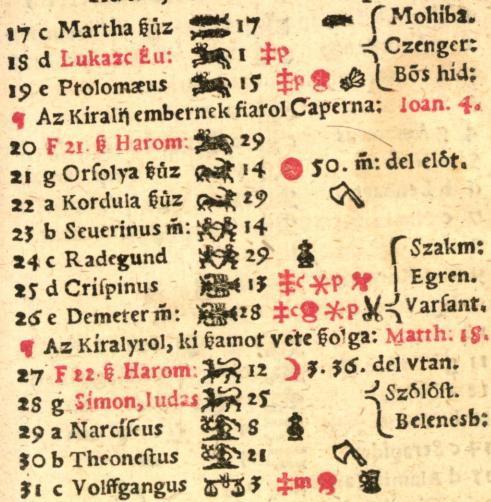 17 c Martha ßûz 17 Mohiba.
18 d Lukazc Eu: 1 ‡p Czenger:
19 e Ptolomæus 15 ‡p Bôs hid:
¶ Az Kiralÿ embernek fiarol Caperna: Ioan. 4.
20 F 21. ß Harom: 29
21 g Orſolya ßûz 14 50. m̃: del elôt.
22 a Kordula ßûz 29
23 b Seuerinus m̃: 14
24 c Radegund 29 Szakm:
25 d Criſpinus 13 ‡c ⚹p Egren.
26 e Demeter m̃: 28 ‡c ⚹p Varſant.
¶ Az Kiralyrol, ki ßamot vete ßolga: Matth: 18.
27 F 22. ß Harom: 12 ☽ 3. 36. del vtan.
28 g Simon, Iudas 25 Szôlôſt.
29 a Narciſcus 8 Belenesb:
30 b Theoneſtus 21
31 c Volffgangus 3 ‡m